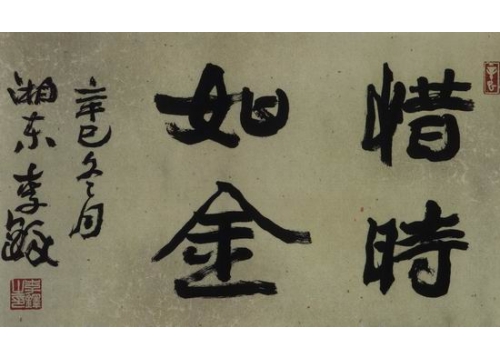 惜時
如金
辛巳冬月
湘东李鐸